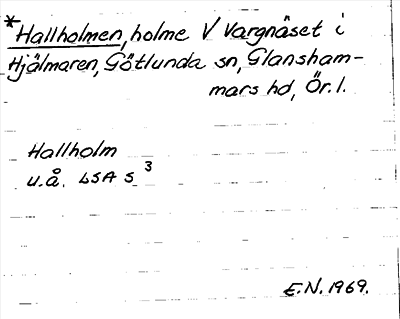 *Hallholmen, holme V Vargnäset i
Hjälmaren, Götlunda sn, Glansham-
mars hd, Ör. l.
Hallholm
u.å. LSA S 3
E.N. 1969.